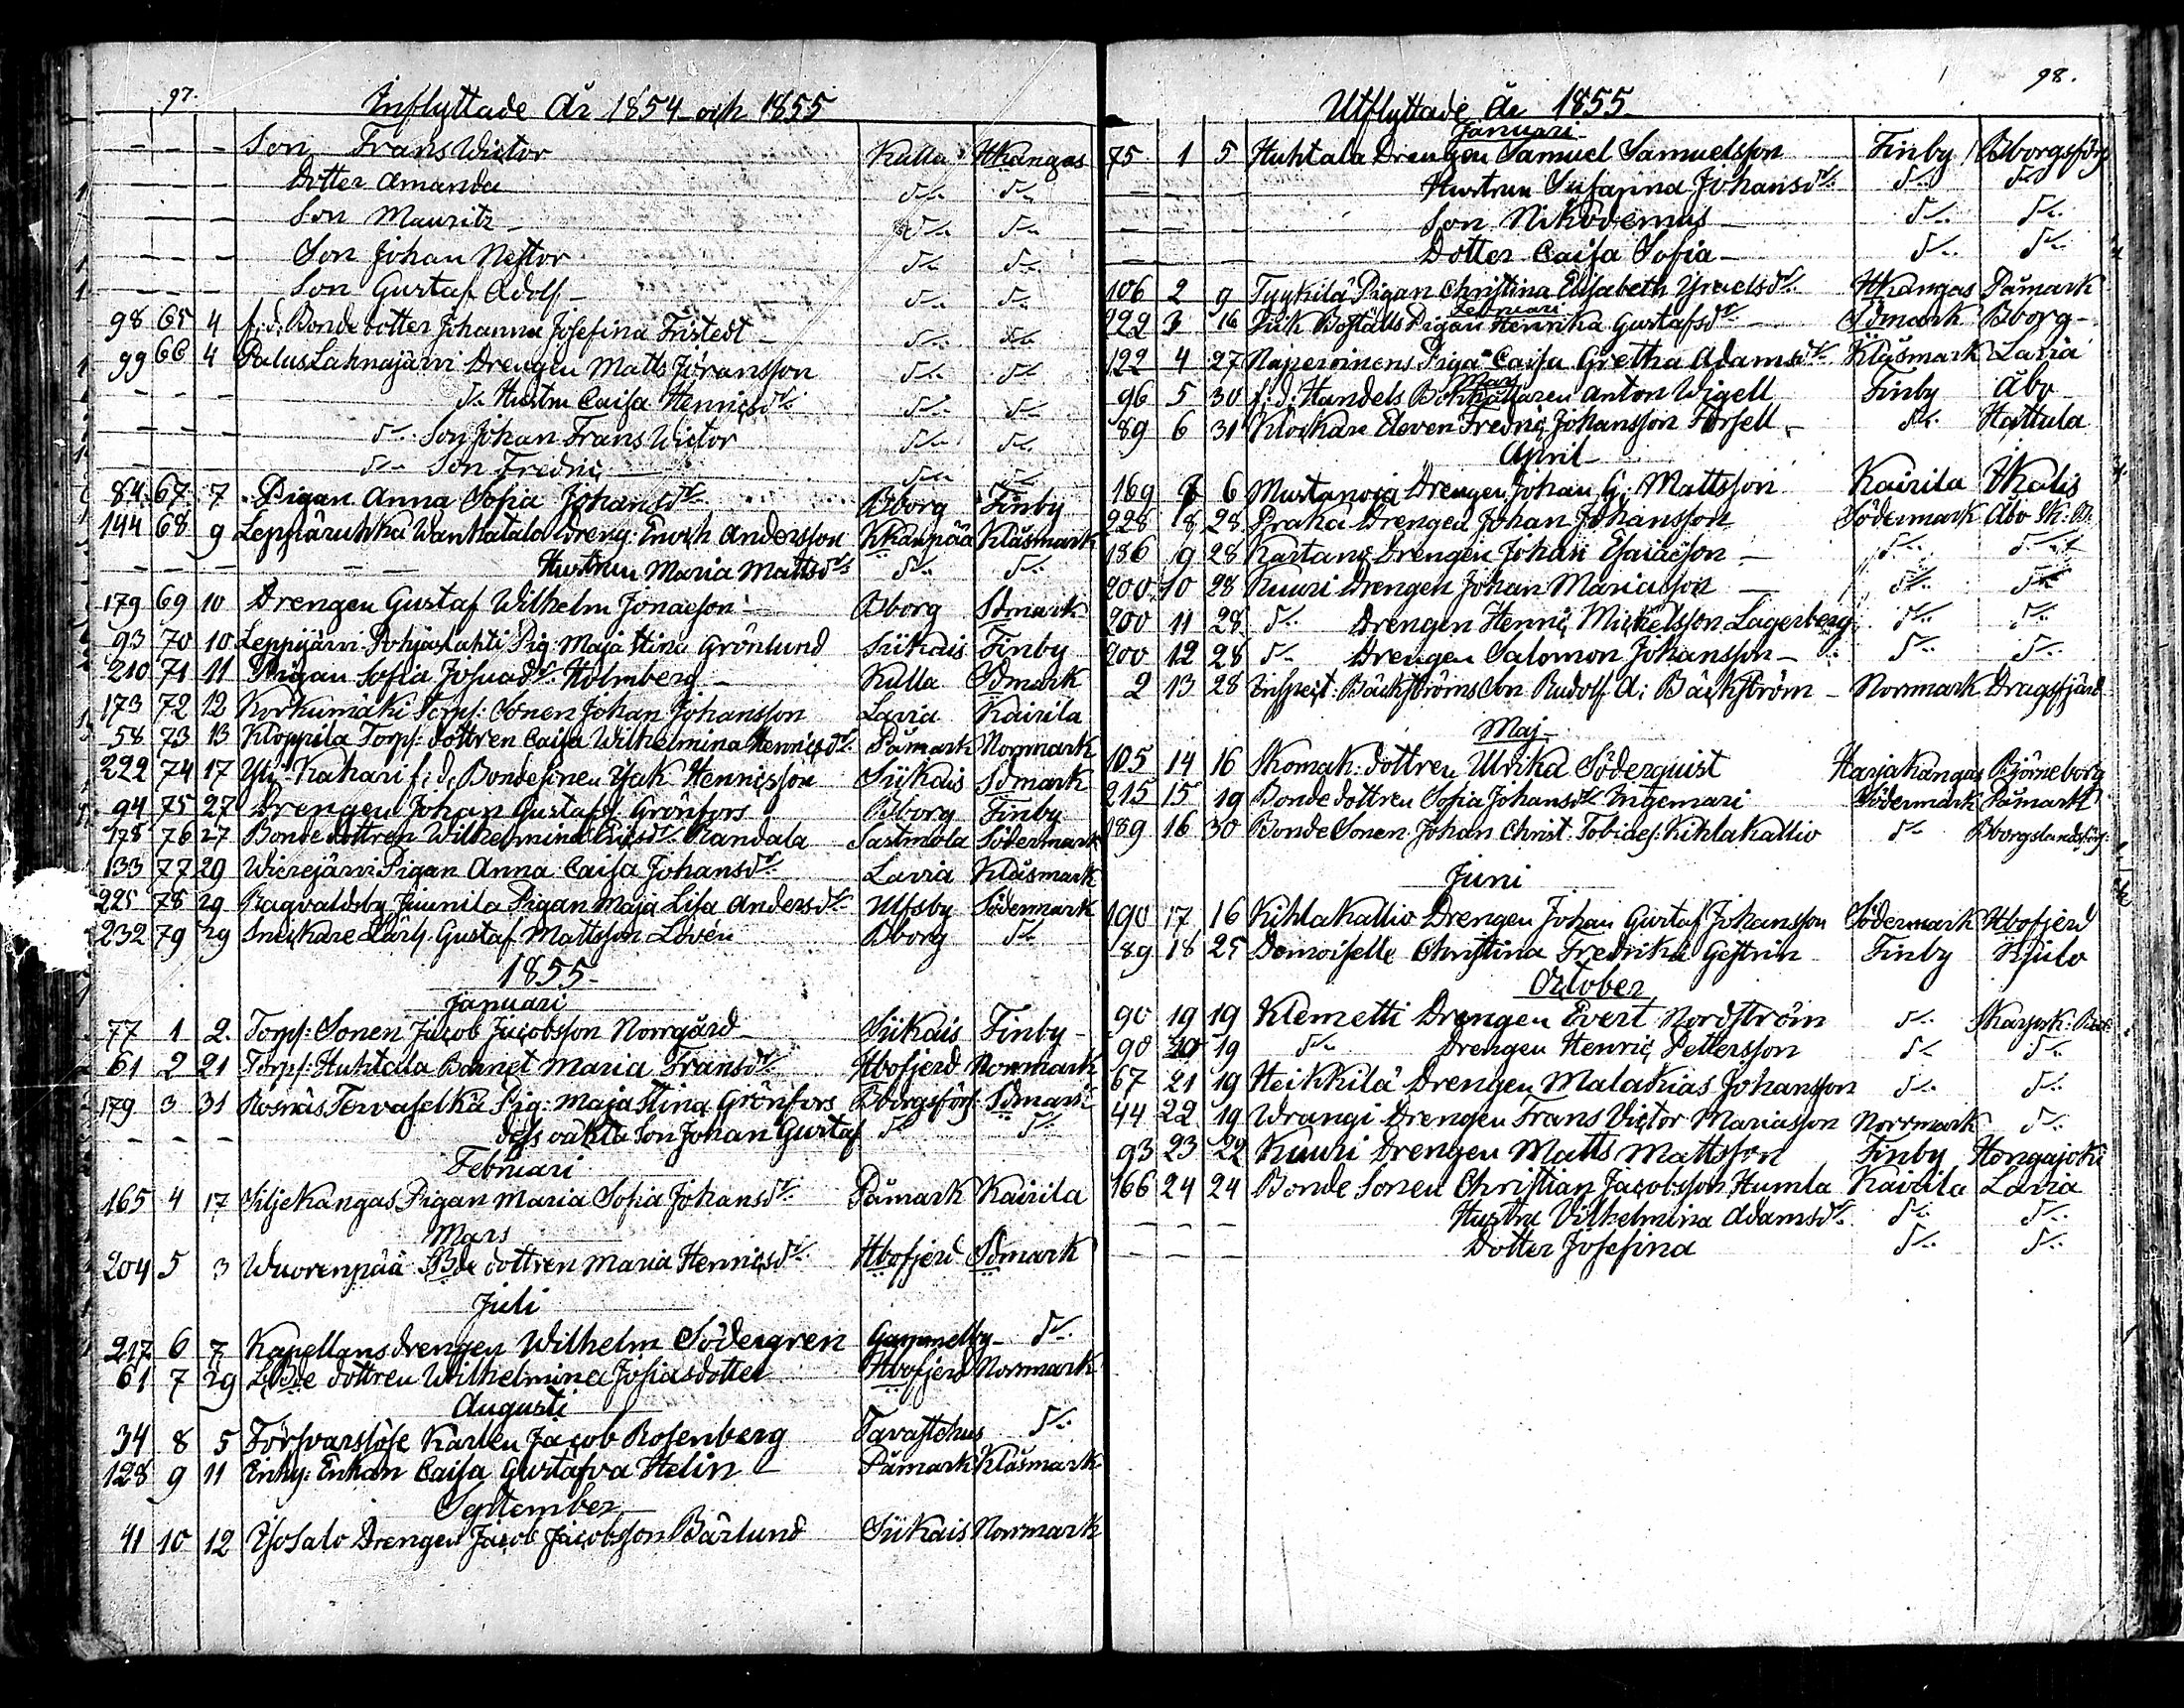 97.
Inflyttade År 1854 och 1855
— — — Son Frans Wictor Kulla Hkangas
— — — Dotter Amanda D:o D:o
— — — Son Mauritz D:o D:o
— — — Son Johan Nestor D:o D:o
— — — Son Gustaf Adolf D:o D:o
98 65 4 f: d: Bondedotter Johanna Josefina Fristedt D:o D:o
99 66 4 Palus Lahnajärvi Drengen Matts Jöransson D:o D:o
— — — D:o Hustru Caisa Henricsd:r D:o D:o
— — — D:o Son Johan Frans Wictor D:o D:o
— — — D:o Son Fredric D:o D:o
84 67 7 Pigan Anna Sofia Johansd:r Bborg Finby
144 68 9 Leppäruhka Wanhatalo Dreng: Enoch Andersson Kkanpää Klåsmark
— — — Hustrun Maria Mattsd:r D:o D:o
179 69 10 Drengen Gustaf Wilhelm Jonasson Bborg Sdmark
93 70 10 Leppijärvi Pohjaslahti Pig: Maja Stina Grönlund Siikais Finby
210 71 11 Pigan Sofia Josuad:r Holmberg Kulla Sdmark
173 72 12 Korkumäki Torp: Sonen Johan Johansson Lavia Kairila
58 73 13 Kloppila Torp: dottren Caisa Wilhelmina Henricsd:r Påmark Norrmark
222 74 17 Yli-Kahari f: d: Bondesonen Isak Henricsson Siikais Sdmark
94 75 27 Drengen Johan Gustafss: Grönfors Bborg Finby
178 76 27 Bondedottren Wilhelmina Ericsd:r Randala Sastmola Södermark
133 77 29 Wierejärvi Pigan Anna Caisa Johansd:r Lavia Klåsmark
225 78 29 Ragvaldsby Juunila Pigan Maja Lisa Andersd:r Ulfsby Södermark
232 79 29 Snickare Lärl. Gustaf Mattsson Löven Bborg D:o
1855
Januari
77 1 2 Torp: Sonen Jacob Jacobsson Norrgård Siikais Finby
61 2 21 Torp: Huhtala Barnet Maria Fransd:r Hbofjerd Norrmark
179 3 31 Rosnäs Tervaselkä Pig: Maja Stina Grönfors Bborgsförs: Sdmark
— — — dess oäkta Son Johan Gustaf D:o D:o
Februari
165 4 17 Siljekangas Pigan Maria Sofia Johansd:r Påmark Kairila
Mars
204 5 3 Wuorenpää Bde dottren Maria Henricsd:r Hbofjerd Sdmark
Juli
217 6 7 Kapellansdrengen Wilhelm Södergren Gammelby D:o
61 7 29 LBde dottren Wilhelmina Josiasdotter Hbofjerd Norrmark
Augusti
34 8 5 Försvarslöse Karlen Jacob Rosenberg Tavastehus D:o
128 9 11 Inhy: Enkan Caisa Gustafva Helin Påmark Klåsmark
September
41 10 12 Isosalo Drengen Jacob Jacobsson Bärlund Siikais Norrmark
98.
Utflyttade År 1855
Januari
75 1 5 Huhtala Drengen Samuel Samuelsson Finby Bborgsförs
— — — Hustrun Susanna Johansd:r D:o D:o
— — — Son Nikodemus D:o D:o
— — — Dotter Caisa Sofia D:o D:o
106 2 9 Tyykilä Pigan Christina Elisabeth Israelsd:r Hkangas Påmark
Februari
222 3 16 Juk Boställs Pigan Henrika Gustafsd:r Sdmark Bborg
122 4 27 Najperoinens Piga Caisa Gretha Adamsd:r Klåsmark Lavia
Mars
96 5 30 f: d: Handels Bokhållaren Anton Wigell Finby Åbo
89 6 31 Klockare Eleven Fredric Johansson Forsell D:o Hattula
April
169 7 6 Mustanoja Drengen Johan G: Mattsson Kairila Ikalis
228 8 28 Praka Drengen Johan Johansson Södermark Åbo
186 9 28 Kartano Drengen Johan Esaiasson D:o D:o
200 10 28 Kuuri Drengen Johan Mariasson D:o D:o
200 11 28 D:o Drengen Henric Mickelsson Lagerberg D:o D:o
200 12 28 D:o Drengen Salomon Johansson D:o D:o
2 13 28 Inspect: Bäckströms Son Rudolf A: Bäckström Norrmark Dragsfjärd
Maj
105 14 16 Skomak: dottren Ulrika Söderquist Harjakangas Björneborg
215 15 19 Bondedottren Sofia Johansd:r Ingemari Södermark Påmark
189 16 30 Bonde Sonen Johan Christ: Tobiaes: Kihlakallio D:o Bborgslandsförs:
Juni
190 17 16 Kihlakallio Drengen Johan Gustaf Johansson Södermark Hbofjerd
89 18 25 Demoiselle Christina Fredrika Gestrin Finby Kjulo
October
90 19 19 Klemetti Drengen Evert Nordström D:o
90 20 19 D:o Drengen Henric Pettersson D:o D:o
67 21 19 Heikkilä Drengen Malakias Johansson D:o D:o
44 22 19 Wrangi Drengen Frans Victor Mariasson Norrmark D:o
93 23 22 Kuuri Drengen Matts Mattsson Finby Hongajoki
166 24 24 Bonde Sonen Christian Jacobsson Humla Kairila Lavia
— — — Hustru Vilhelmina Adamsd:r D:o D:o
— — — Dotter Josefina D:o D:o